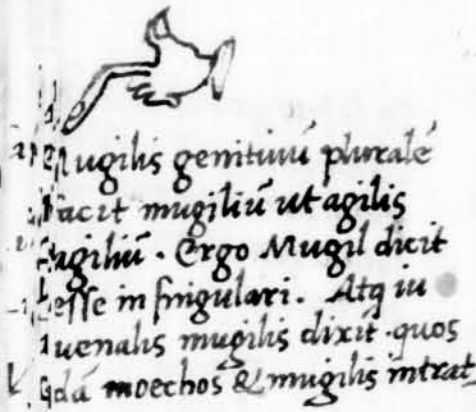 Mugilis genitiuū pluralē
facit mugiliū ut agilis
agiliū. Ergo Mugil dicit
esse in singulari. Atq iu
uenalis mugilis dixit. quos
dā moechos & mugilis intrat